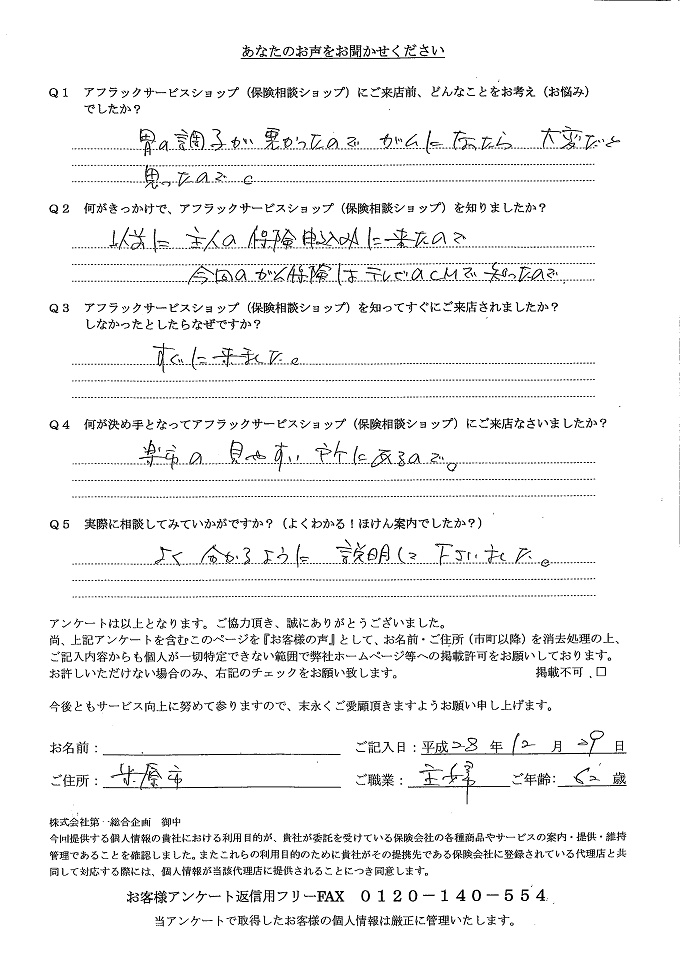 あなたのお声をお聞かせください
Q1 アフラックサービスショップ（保険相談ショップ）にご来店前、どんなことをお考え（お悩み）
でしたか？
胃の調子が悪かったので がんになったら 大変だと
思ったので。
Q2 何がきっかけで、アフラックサービスショップ（保険相談ショップ）を知りましたか？
以前に 主人の 保険申込みに来たので
今回のがん保険は テレビのCMで 知ったので
Q3 アフラックサービスショップ（保険相談ショップ）を知ってすぐにご来店されましたか？
しなかったとしたらなぜですか？
すぐに来ました。
Q4 何が決め手となってアフラックサービスショップ（保険相談ショップ）にご来店なさいましたか？
楽市の 見やすい 所にあるので。
Q5 実際に相談してみていかがですか？（よくわかる！ほけん案内でしたか？）
よく 分かるように 説明して 下さいました。
アンケートは以上となります。ご協力頂き、誠にありがとうございました。
尚、上記アンケートを含むこのページを『お客様の声』として、お名前・ご住所（市町以降）を消去処理の上、
ご記入内容からも個人が一切特定できない範囲で弊社ホームページ等への掲載許可をお願いしております。
お許しいただけない場合のみ、右記のチェックをお願い致します。 掲載不可 □
今後ともサービス向上に努めて参りますので、末永くご愛顧頂きますようお願い申し上げます。
お名前： ご記入日：平成28年12月29日
ご住所：米原市 ご職業：主婦 ご年齢：62歳
株式会社第一総合企画 御中
今回提供する個人情報の貴社における利用目的が、貴社が委託を受けている保険会社の各種商品やサービスの案内・提供・維持
管理であることを確認しました。またこれらの利用目的のために貴社がその提携先である保険会社に登録されている代理店と共
同して対応する際には、個人情報が当該代理店に提供されることにつき同意します。
お客様アンケート返信用フリーFAX 0120－140－554
当アンケートで取得したお客様の個人情報は厳正に管理いたします。